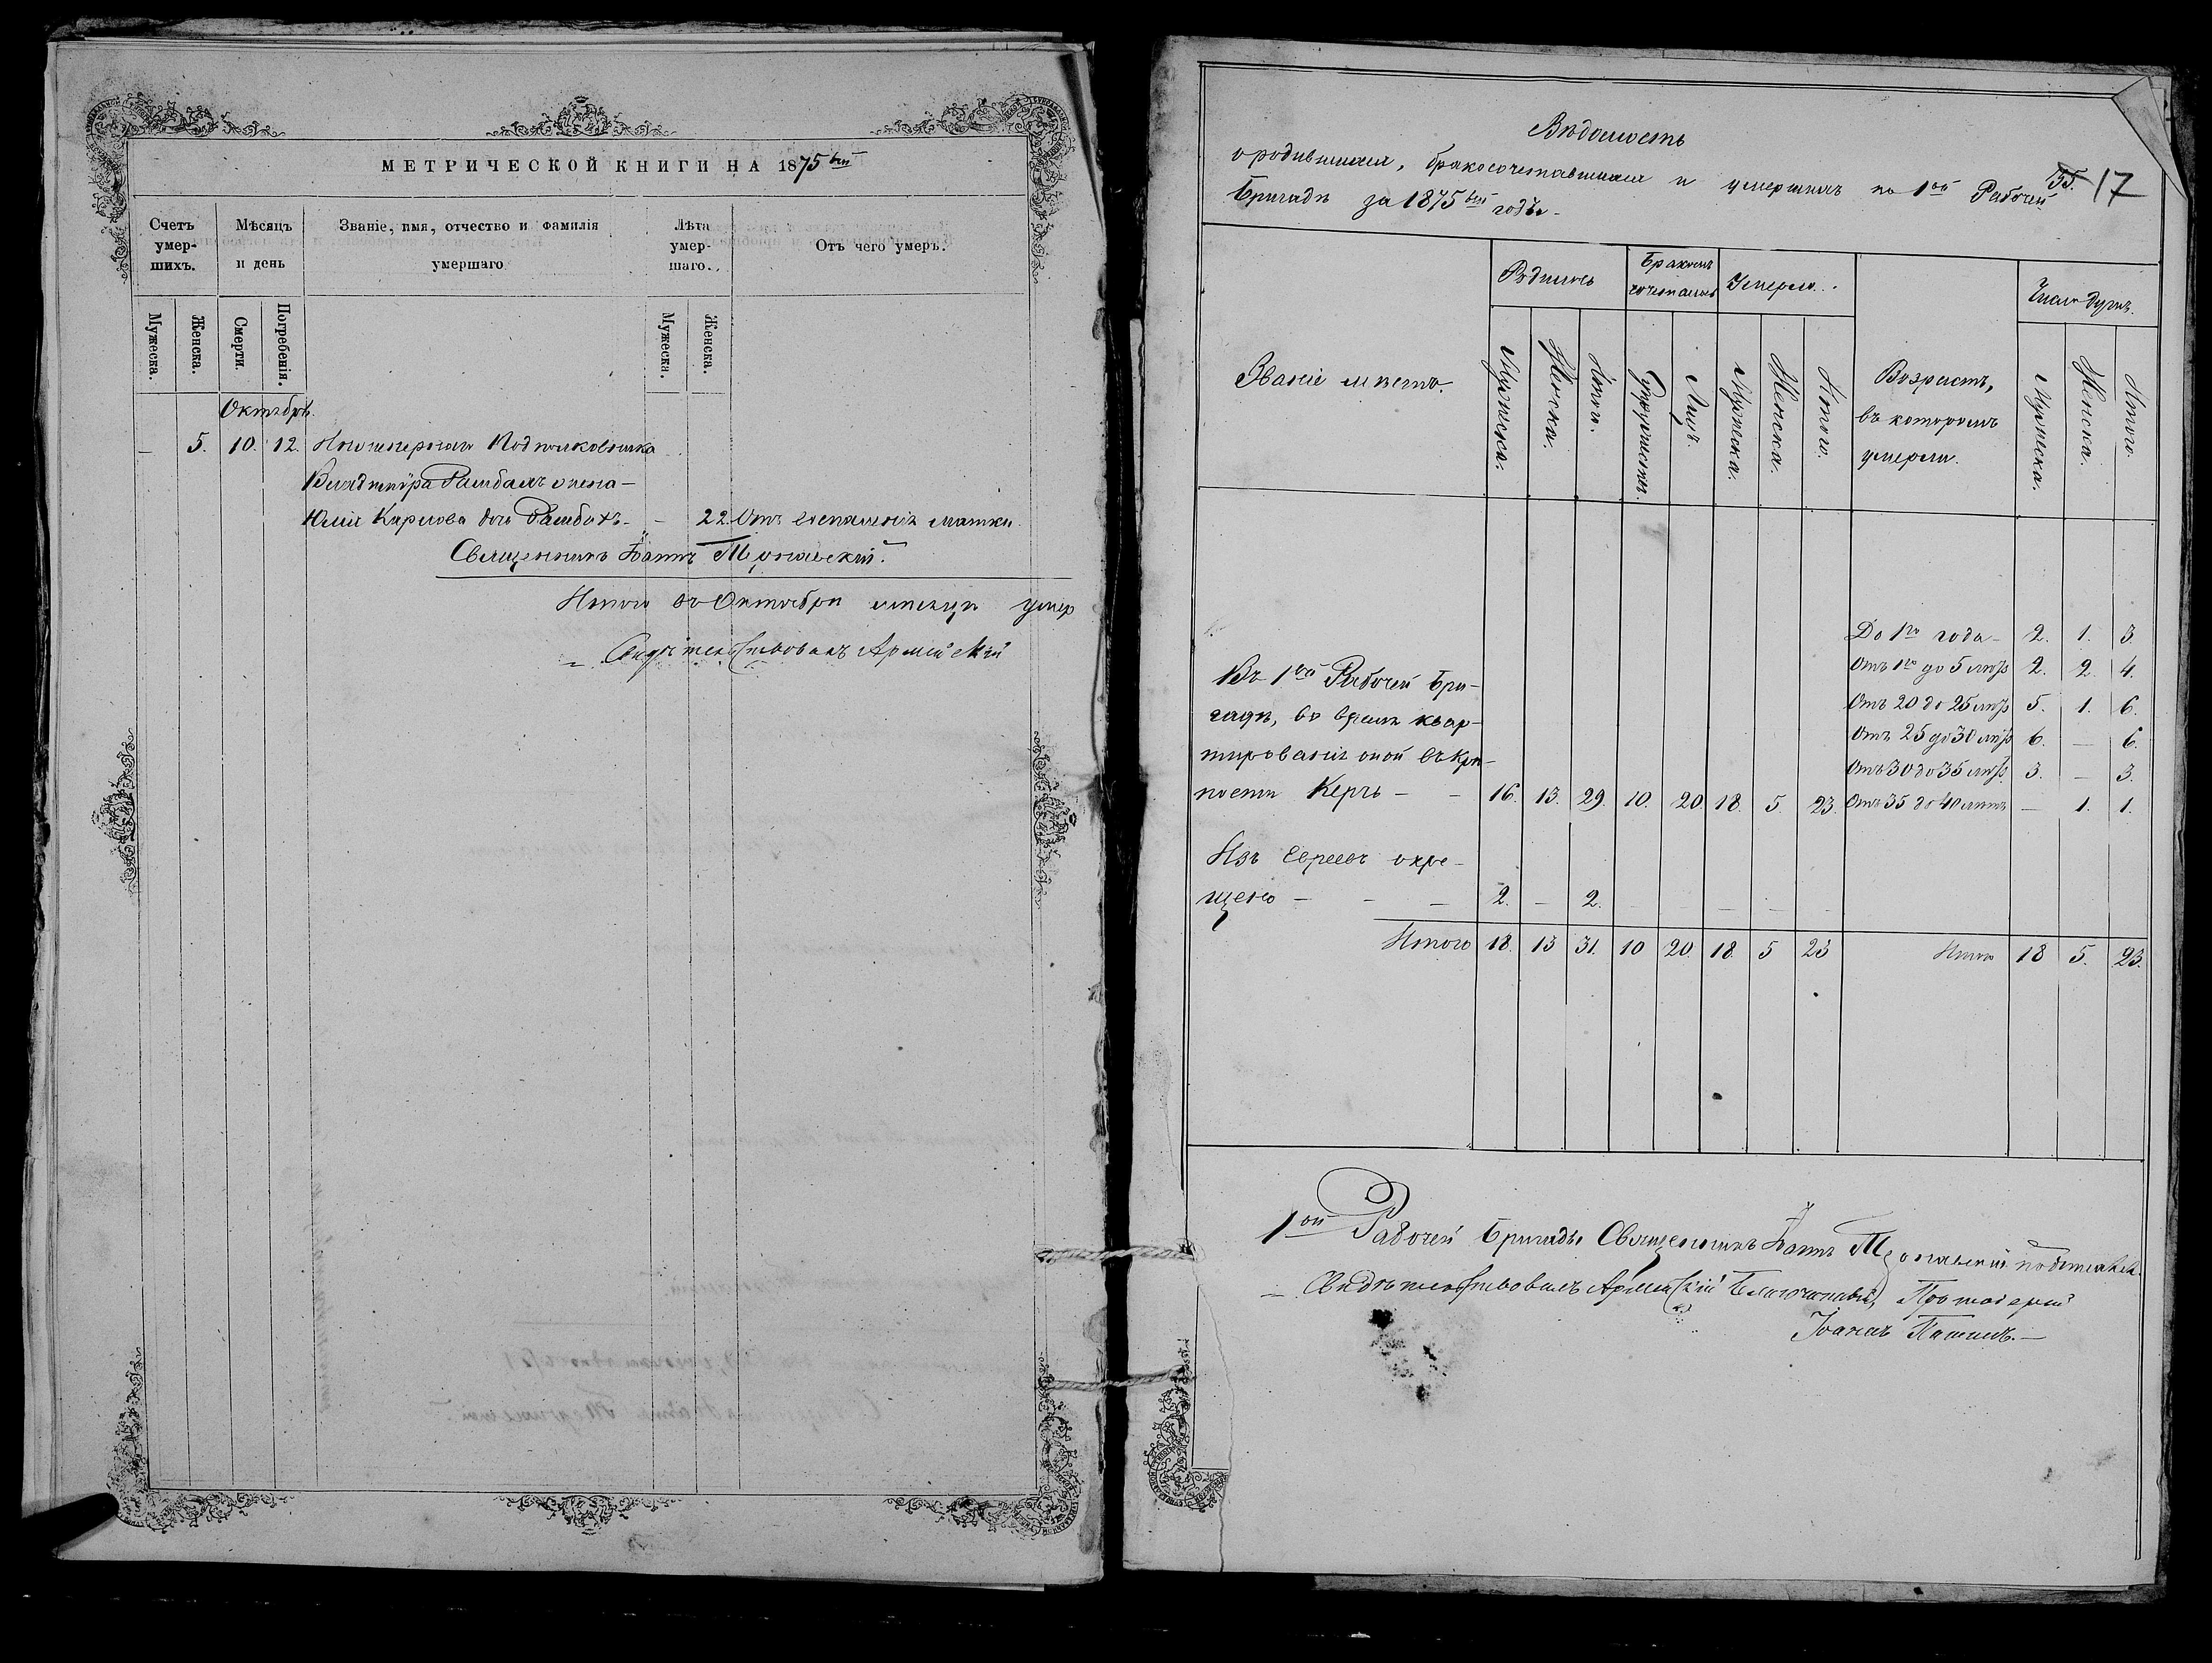 МЕТРИЧЕСКОЙ КНИГИ НА 1875 ый
Счетъ умер- шихъ.
Мѣсяцъ и день
Званіе, имя, отчество и фамилія умершаго
Лѣта умер- шаго.
Отъ чего умеръ.
Мужеска.
Женска.
Смерти.
Погребенія.
Мужеска.
Женска.
Октябрь.
— 5. 10. 12. Инженернаго Подполковника
жена —
Юлія Карлова — 22 Отъ воспаленія матки.
Священникъ Іоаннъ
Итого въ Октябрѣ мѣсяцѣ умер
Свидѣтельствовалъ Армейскій
Вѣдомость
о родившихся, бракосочетавшихся и умершихъ по 1ой Рабочей
35. 17
Бригадѣ за 1875 ый годъ.
Званіе мѣстъ.
Родилось
Бракомъ сочеталось
Умерло.
Возрастъ, въ которомъ умерли.
Число душъ.
Мужеска.
Женска.
Итого.
Супружествъ.
Лицъ.
Мужеска.
Женска.
Итого.
Мужеска.
Женска.
Итого.
До 1го года — 2. 1. 3.
Отъ 1го до 5 лѣтъ 2. 2. 4.
Отъ 20 до 25 лѣтъ 5. 1. 6.
Отъ 25 до 30 лѣтъ 6. — 6.
Отъ 30 до 35 лѣтъ 3. — 3.
Въ 1ой Рабочей Бри-
гадѣ, во время квар-
тированія оной въ Крѣ-
пости Керчь — — 16. 13. 29. 10. 20 18. 5. 23. Отъ 35 до 40 лѣтъ — 1. 1.
Изъ Евреевъ окре-
щено — — — 2. — 2. — — — — —
Итого 18. 13 31. 10 20. 18. 5 23 Итого 18 5. 23.
1ой Рабочей Бригады Священникъ Іоаннъ
Свидѣтельствовалъ Армейскій Благочинный, Протоіерей
Іоаннъ